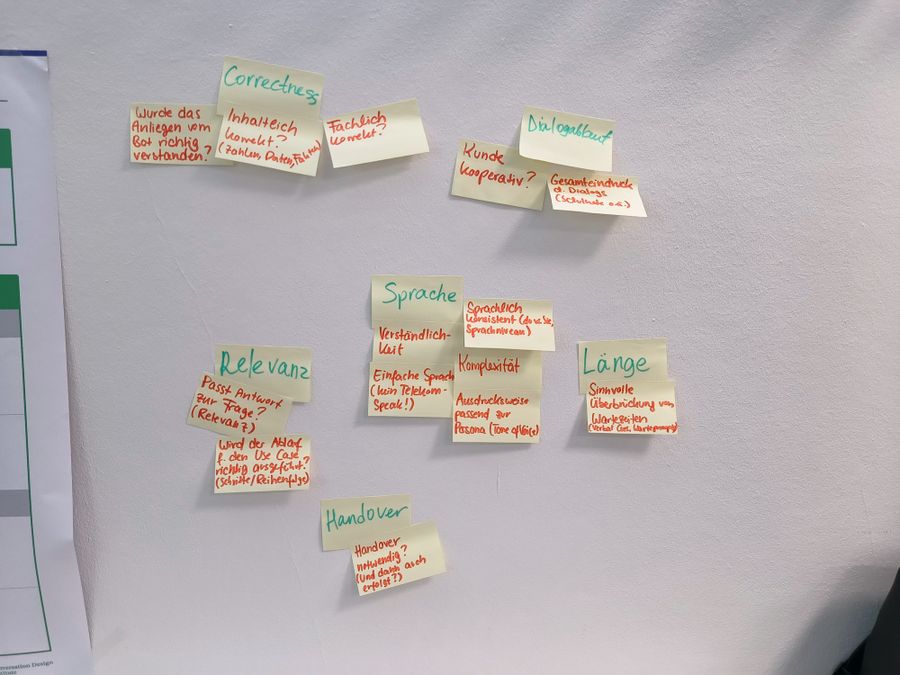 Correctness
Wurde das
Anliegen vom
Bot richtig
verstanden?
Inhaltlich
korrekt?
(Zahlen, Daten, Fakten)
Fachlich
korrekt?
Dialogablauf
Kunde
kooperativ?
Gesamteindruck
d. Dialogs
(Schulnote o.ä.)
Sprache
Verständlich-
keit
Einfache Sprache
(kein Telekom-
Speak!)
Sprachlich
konsistent (du vs Sie,
Sprachniveau)
Komplexität
Ausdrucksweise
passend zur
Persona (Tone of Voice)
Relevanz
Passt Antwort
zur Frage?
(Relevanz)
Wird der Ablauf
f. den Use Case
richtig ausgeführt?
(Schritte/Reihenfolge)
Länge
Sinnvolle
Überbrückung von
Wartezeiten
(Verbal Cues, Warteprompts)
Handover
Handover
notwendig?
(Und dann auch
erfolgt?)
Conversation Design